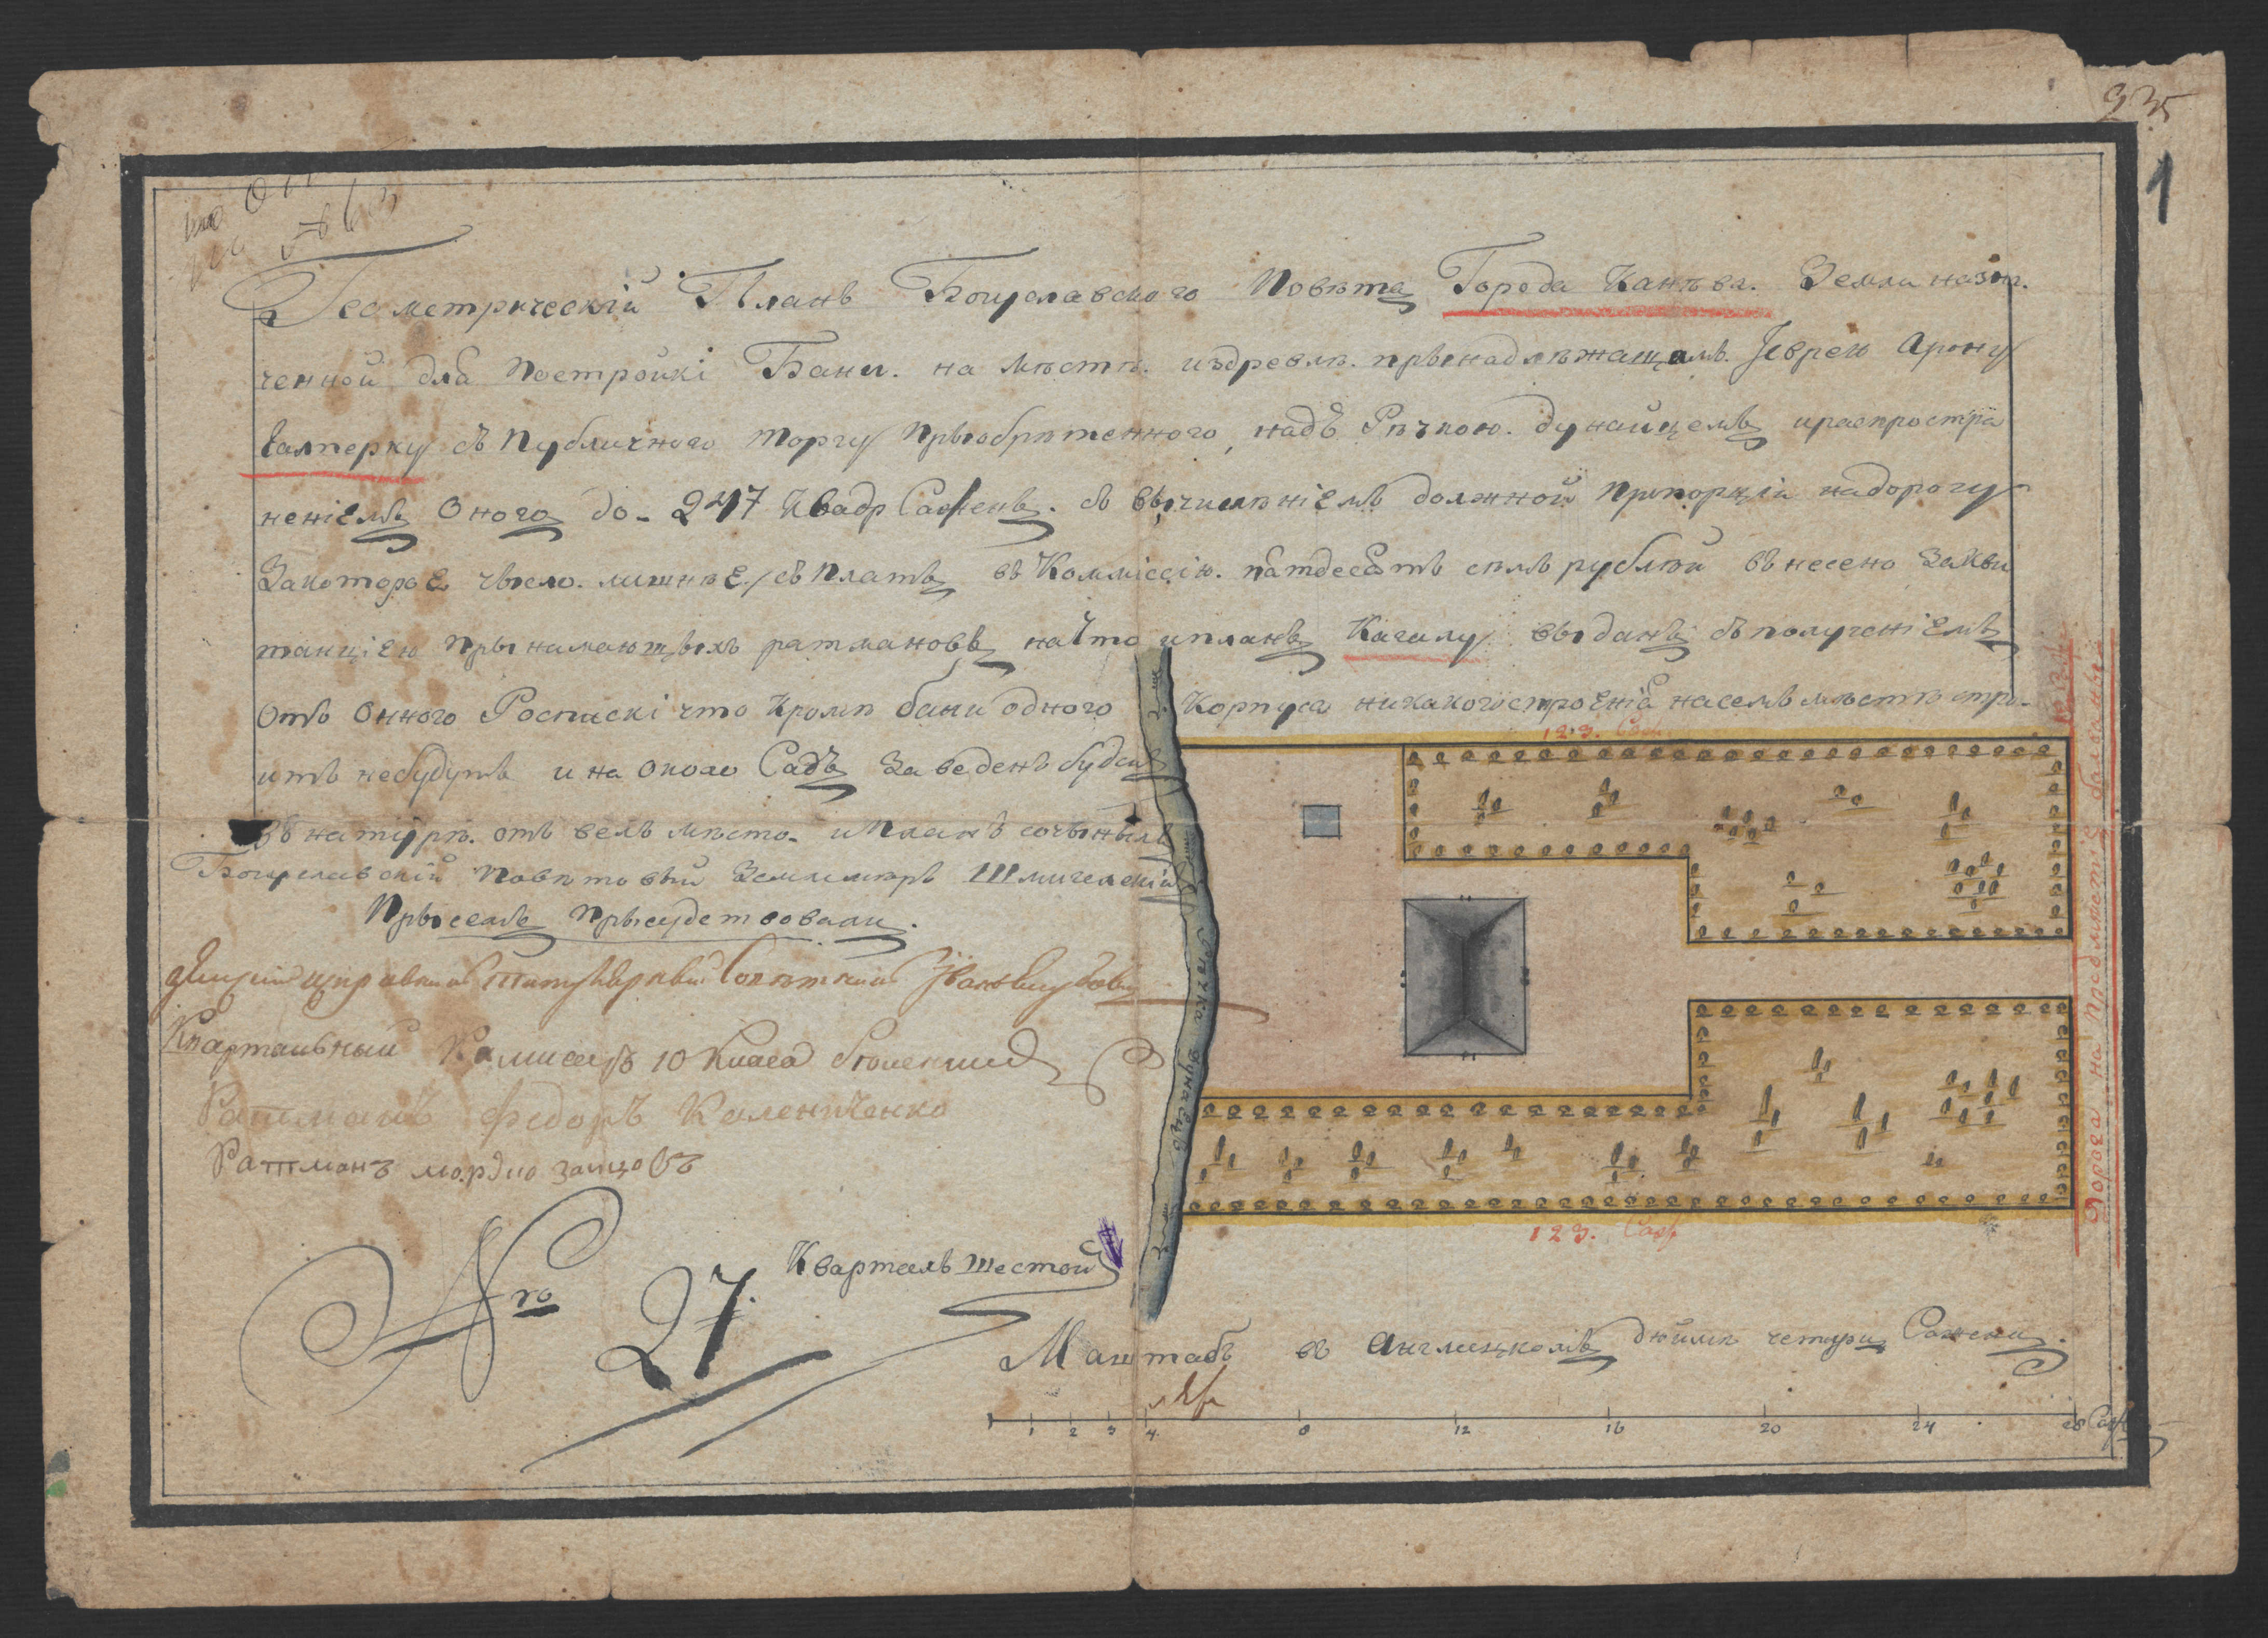 335
1
Геометрическій Планъ Богуславского Повѣта Города Канѣва. Земли назна.
ченной для Постройкі Бани. на мѣстѣ. издревлѣ. прынадлѣжащемъ. Іеврею Арону
Галперку съ Публичного торгу Прыобрѣтенного, надъ Рѣчкою. дунайцемъ ираспростра
неніемъ Оного до - 247 Квадр Саженъ. съ вычисленіемъ должной Пропорціи надорогу
Закоторое число. лишнѣе съ Платъ въ Коммиссію. пятдесятъ семъ рублѣй внесено Закви
танціею Прынимающыхъ ратмановъ начто ипланъ Кагалу выданъ съполученіемъ
Отъ Онного Роспискі что Кромѣ бани одного Корпуса никакогостроенія насемъ мѣстѣ стро-
итъ небудутъ и на около Садъ Заведенъ будетъ
Въ натурѣ. отъ велъ мѣсто. иПланъ сочынылъ
Богуславскій Повѣтовый Землемѣръ
Прысемъ Прысудствовали.
Квартальный Комисаръ 10 Класа
Ратманъ Федоръ Коленыченко
Ратманъ мордко зайцовъ
Nro 27. Кварталъ шестой
Маштабъ въ Англицкомъ дюймѣ четыри Сажени.
1 2 3 4. 8 12 16 20 24 28 Саж
123. Саж
Рѣчка дунаецъ
123. Саж
Дорога на Предмѣстіе